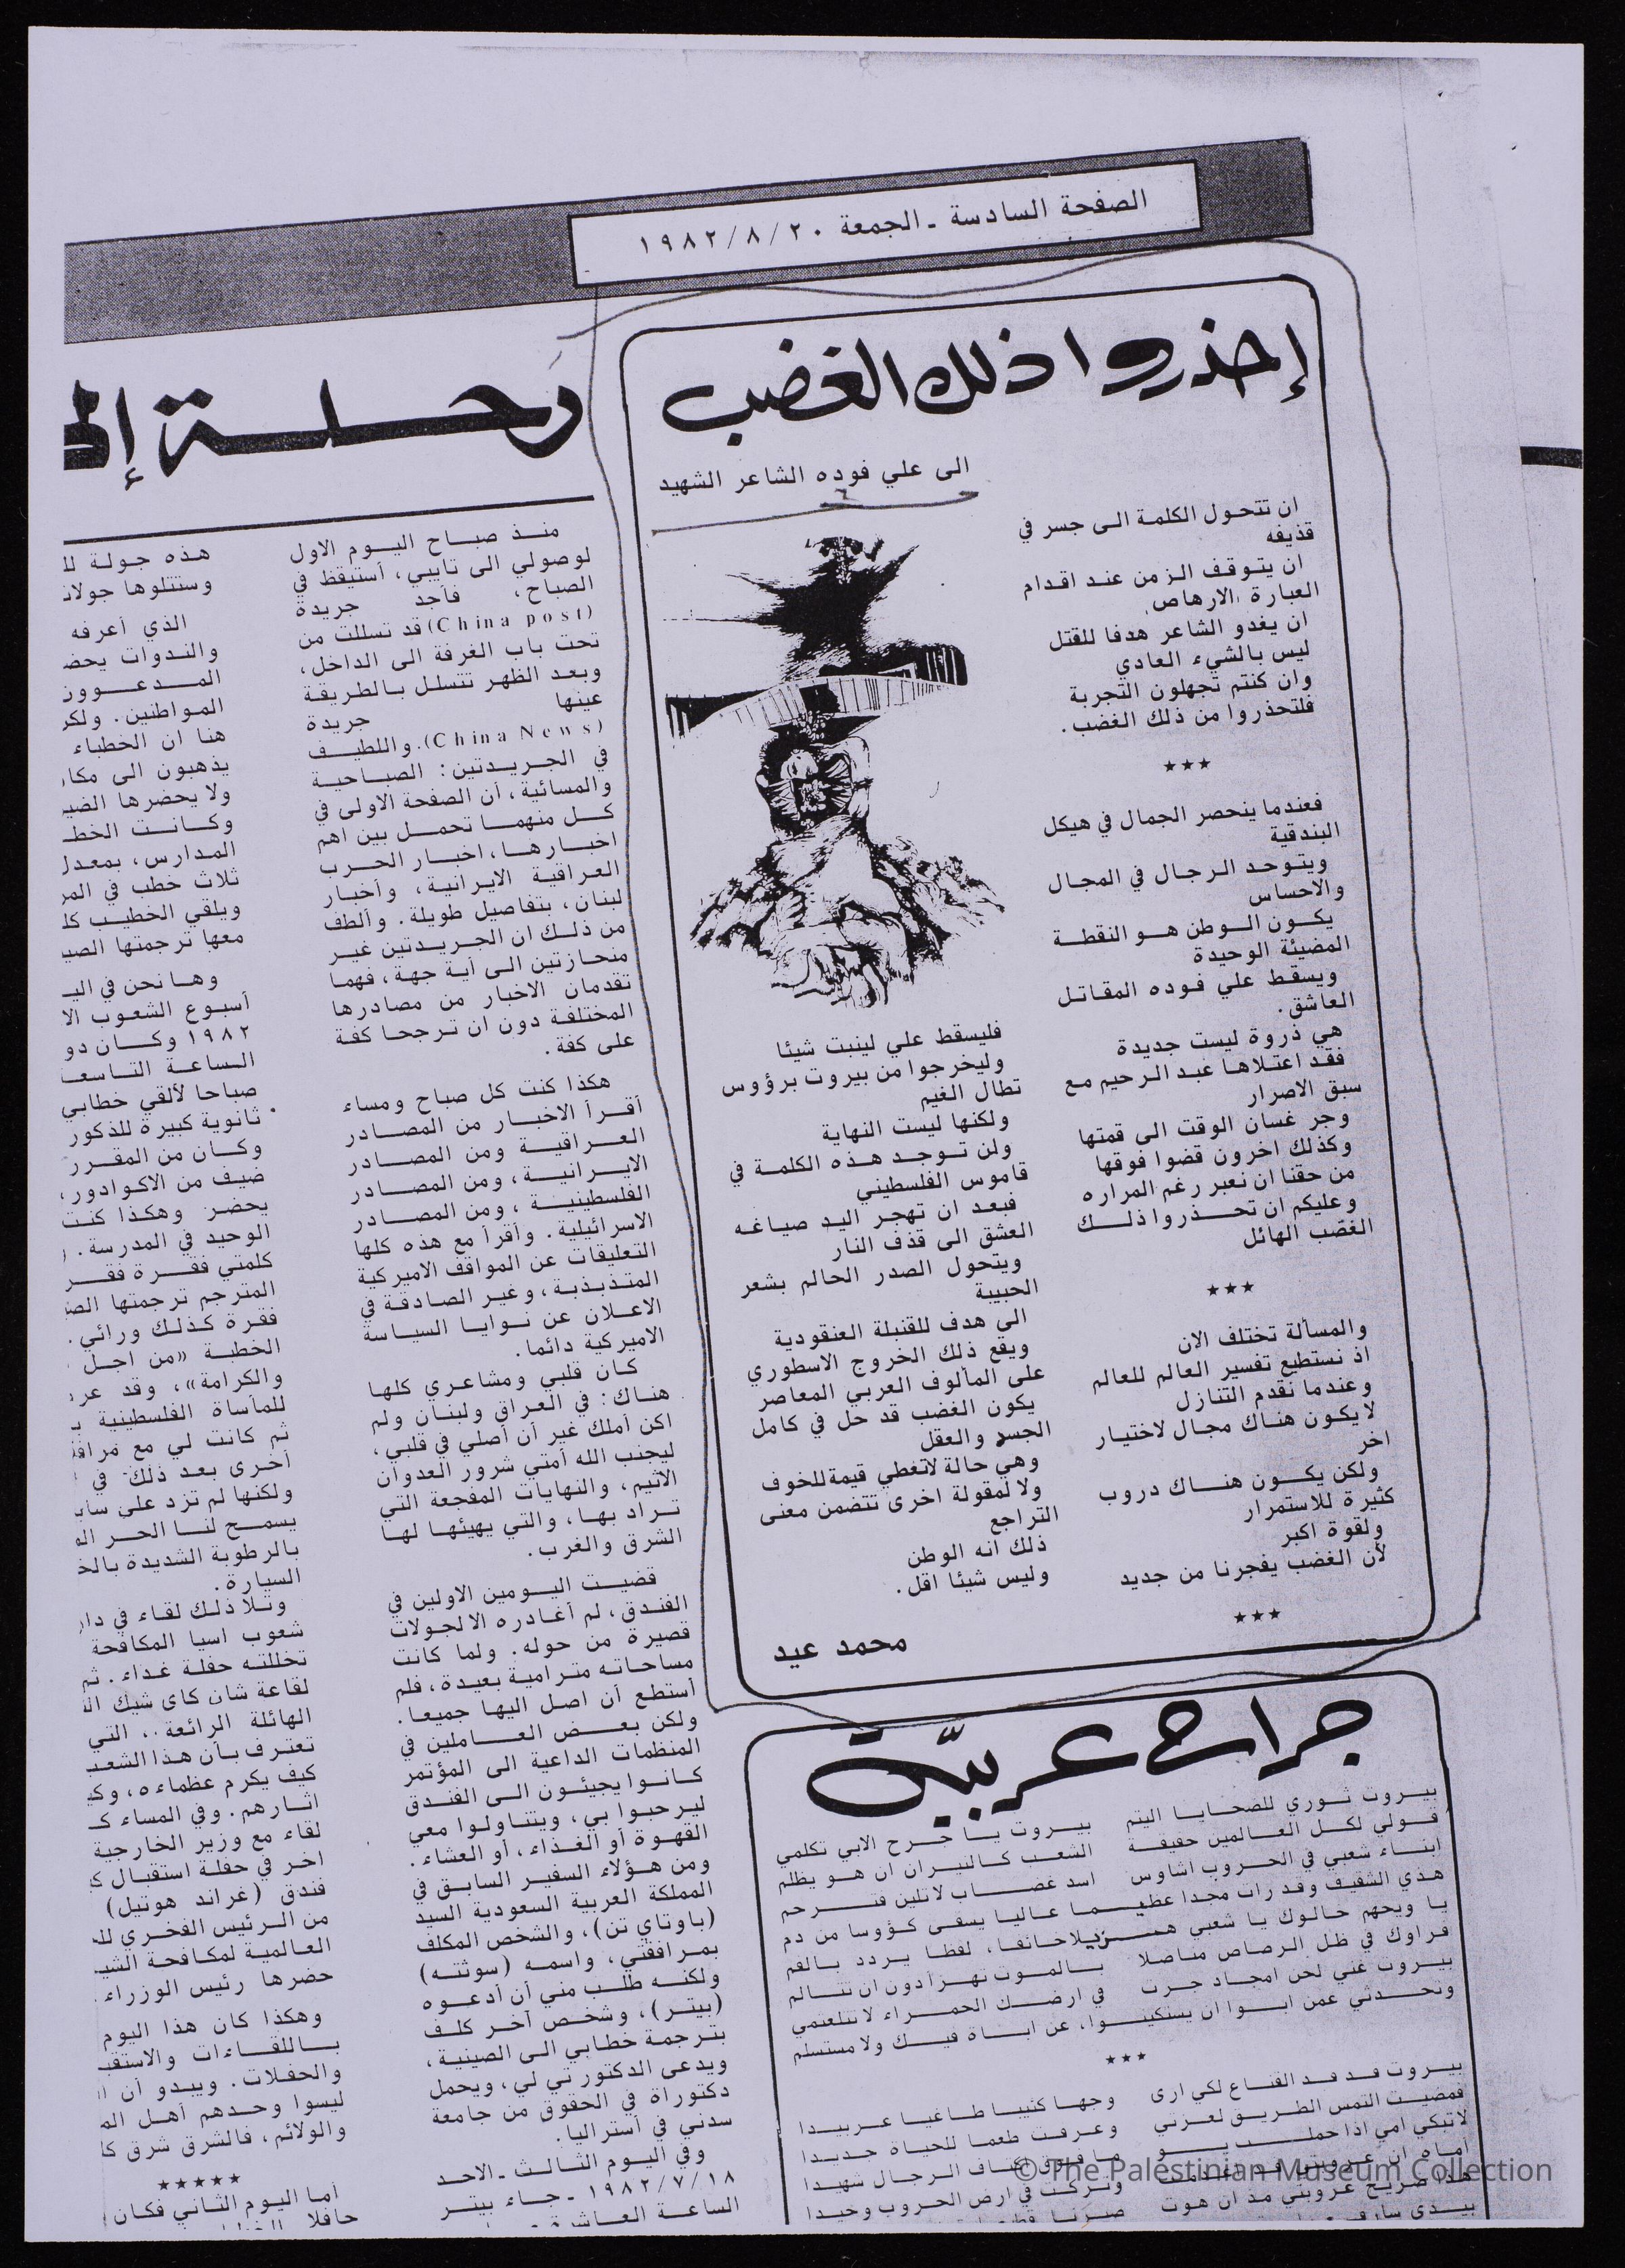 الصفحة السادسة ـ الجمعة ٢٠/٨/١٩٨٢
إحذروا ذلك الغضب
الى علي فوده الشاعر الشهيد
ان تتحول الكلمة الى جسر في
قذيفه
ان يتوقف الزمن عند اقدام
العبارة الارهاص،
ان يغدو الشاعر هدفا للقتل
ليس بالشيء العادي
وان كنتم تجهلون التجربة
فلتحذروا من ذلك الغضب.
***
فعندما ينحصر الجمال في هيكل
البندقية
ويتوحد الرجال في المجال
والاحساس
يكون الوطن هو النقطة
المضيئة الوحيدة
ويسقط علي فوده المقاتل
العاشق.
هي ذروة ليست جديدة
فقد اعتلاها عبد الرحيم مع
سبق الاصرار
وجر غسان الوقت الى قمتها
وكذلك اخرون قضوا فوقها
من حقنا ان نعبر رغم المراره
وعليكم ان تحذروا ذلك
الغضب الهائل
***
والمسألة تختلف الان
اذ نستطيع تفسير العالم للعالم
وعندما نقدم التنازل
لا يكون هناك مجال لاختيار
اخر
ولكن يكون هناك دروب
كثيرة للاستمرار
ولقوة اكبر
لأن الغضب يفجرنا من جديد
***
فليسقط علي لينبت شيئا
وليخرجوا من بيروت برؤوس
تطال الغيم
ولكنها ليست النهاية
ولن توجد هذه الكلمة في
قاموس الفلسطيني
فبعد ان تهجر اليد صياغه
العشق الى قذف النار
ويتحول الصدر الحالم بشعر
الحبيبة
الى هدف للقنبلة العنقودية
ويقع ذلك الخروج الاسطوري
على المألوف العربي المعاصر
يكون الغضب قد حل في كامل
الجسد والعقل
وهي حالة لاتعطي قيمة للخوف
ولا لمقولة اخرى تتضمن معنى
التراجع
ذلك انه الوطن
وليس شيئا اقل.
محمد عيد
جراح عربيّة
بيروت ثوري للضحايا اليتم
بيروت يا جرح الابي تكلمي
قولي لكل العالمين حقيقة
الشعب كالنيران ان هو يظلم
ابناء شعبي في الحروب اشاوس
اسد غضاب لاتلين فترحم
هذي الشقيف وقد رات مجدا عظيما
عاليا يسقى كؤوسا من دم
يا ويحهم خالوك يا شعبي هزيلا
خانفا، لفظا يردد بالفم
فراوك في ظل الرصاص مناضلا
بالموت تهزأ دون ان تتالم
بيروت غني لحن امجاد جرت
في ارضك الحمراء لا تتلعثمي
وتحدثي عمن ابوا ان يستكينوا،
عن اباة فيك ولا مستسلم
***
بيروت قد قد القناع لكي ارى
وجها كئيبا طاغيا عربيدا
فمضيت التمس الطريق لعزتي
وعرفت طعما للحياة جديدا
لاتبكي امي اذا حملت
ما فوق اكتاف الرجال شهيدا
وتركت في ارض الحروب وحيدا
هذا ضريح عروبتي مذ ان هوت
رحلة إلى
منذ صباح اليوم الاول
لوصولي الى تايبي، أستيقظ في
الصباح، فأجد جريدة
(China post) قد تسللت من
تحت باب الغرفة الى الداخل،
وبعد الظهر تتسلل بالطريقة
عينها جريدة
(China News). واللطيف
في الجريدتين: الصباحية
والمسائية، أن الصفحة الاولى في
كل منهما تحمل بين اهم
اخبارها، اخبار الحرب
العراقية الايرانية، وأخبار
لبنان، بتفاصيل طويلة. وألطف
من ذلك ان الجريدتين غير
منحازتين الى أية جهة، فهما
تقدمان الاخبار من مصادرها
المختلفة دون ان ترجحا كفة
على كفة.
هكذا كنت كل صباح ومساء
أقرأ الاخبار من المصادر
العراقية ومن المصادر
الايرانية، ومن المصادر
الفلسطينية، ومن المصادر
الاسرائيلية. وأقرأ مع هذه كلها
التعليقات عن المواقف الاميركية
المتذبذبة، وغير الصادقة في
الاعلان عن نوايا السياسة
الاميركية دائما.
كان قلبي ومشاعري كلها
هناك: في العراق ولبنان ولم
اكن أملك غير أن أصلي في قلبي،
ليجنب الله أمتي شرور العدوان
الاثيم، والنهايات المفجعة التي
تراد بها، والتي يهيئها لها
الشرق والغرب.
قضيت اليومين الاولين في
الفندق، لم أغادره الا لجولات
قصيرة من حوله. ولما كانت
مساحاته مترامية بعيدة، فلم
أستطع أن اصل اليها جميعا.
ولكن بعض العاملين في
المنظمات الداعية الى المؤتمر
كانوا يجيئون الى الفندق
ليرحبوا بي، ويتناولوا معي
القهوة أو الغذاء، أو العشاء.
ومن هؤلاء السفير السابق في
المملكة العربية السعودية السيد
(باوتاي تن)، والشخص المكلف
بمرافقتي، واسمه (سوثته)
ولكنه طلب مني أن أدعوه
(بيتر)، وشخص آخر كلف
بترجمة خطابي الى الصينية،
ويدعى الدكتور تي لي، ويحمل
دكتوراة في الحقوق من جامعة
سدني في أستراليا.
وفي اليوم الثالث ـ الاحد
١٨/٧/١٩٨٢ ـ جاء بيتر
الساعة العاشرة
هذه جولة لل
وستتلوها جولات
الذي أعرفه
والندوات يحض
المدعوون
المواطنين. ولكن
هنا ان الخطباء
يذهبون الى مكا
ولا يحضرها الضي
وكانت الخط
المدارس، بمعدل
ثلاث خطب في المر
ويلقي الخطيب كل
معها ترجمتها الصي
وها نحن في الي
أسبوع الشعوب الا
١٩٨٢ وكان دو
الساعة التاسع
صباحا لألقي خطابي
ثانوية كبيرة للذكور
وكان من المقرر
ضيف من الاكوادور،
يحضر وهكذا كنت
الوحيد في المدرسة.
كلمتي فقرة فقر
المترجم ترجمتها الص
فقرة كذلك ورائي.
الخطبة «من اجل
والكرامة»، وقد عر
للمأساة الفلسطينية ب
ثم كانت لي مع مرافق
أخرى بعد ذلك في
ولكنها لم تزد على ساب
يسمح لنا الحر الم
بالرطوبة الشديدة بالخ
السيارة.
وتلا ذلك لقاء في دار
شعوب اسيا المكافحة
تخللته حفلة غداء. ثم
لقاعة شان كاي شيك ال
الهائلة الرائعة، التي
تعترف بأن هذا الشعب
كيف يكرم عظماءه، وكي
اثارهم. وفي المساء ك
لقاء مع وزير الخارجية
اخر في حفلة استقبال ك
فندق (غراند هوتيل)
من الرئيس الفخري لل
العالمية لمكافحة الشي
حضرها رئيس الوزراء
وهكذا كان هذا اليوم
باللقاءات والاستقب
والحفلات. ويبدو أن ا
ليسوا وحدهم أهل الم
والولائم، فالشرق شرق كا
*****
أما اليوم الثاني فكان
حافلا
© The Palestinian Museum Collection